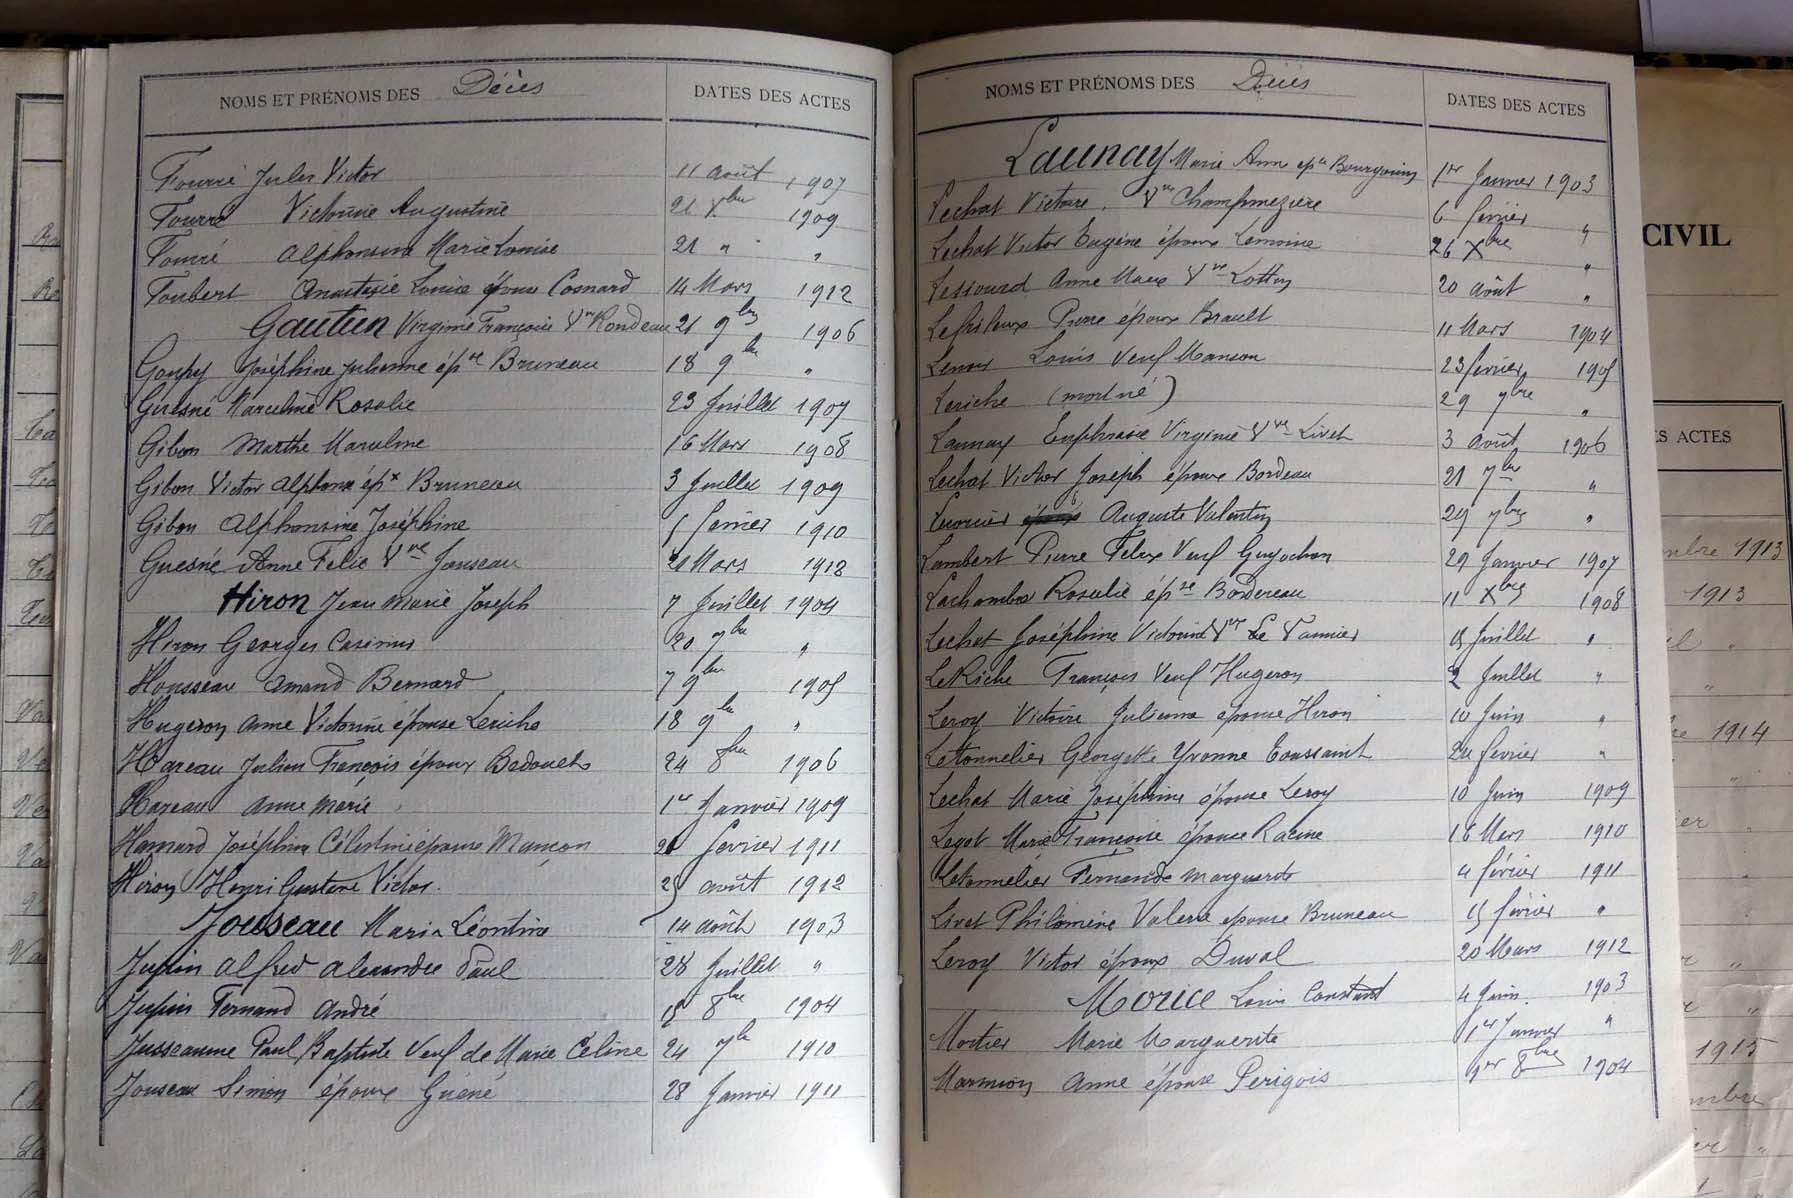 NOMS ET PRÉNOMS DES Décès DATES DES ACTES
Fourré Jules Victor 11 août 1907
Fourré Victorine Augustine 21 Xbre 1909
Fourré Alphonsine Marie Louise 21 " "
Foubert Anastasie Louise épouse Cosnard 14 Mars 1912
Gautier Virginie Françoise Vve Rondeau 21 9bre 1906
Goupy Joséphine Julienne épse Bruneau 18 9bre "
Guesné Marceline Rosalie 23 Juillet 1907
Gibon Marthe Marceline 16 Mars 1908
Gibon Victor Alphonse épx Bruneau 3 Juillet 1909
Gibon Alphonsine Joséphine 5 février 1910
Guesné Anne Félie Vve Jouseau Mars 1912
Hiron Jean Marie Joseph 7 Juillet 1904
Hiron Georges Casimir 20 7bre "
Housseau Amand Bernard 7 9bre 1905
Hugeron Anne Victorine épouse Leriche 18 9bre "
Hareau Julien François époux Bedouet 24 8bre 1906
Hareau Anne Marie 1er Janvier 1909
Hamard Joséphine Célestine épouse Manson février 1911
Hiron Henri Gustave Victor. 25 août 1912
Jouseau Maria Léontine 14 août 1903
Jupin Alfred Alexandre Paul 28 Juillet "
Jupin Fernand André 15 8bre 1904
Jusseaume Paul Baptiste Veuf de Marie Céline 24 7bre 1910
Jouseau Simon époux Guéné 28 Janvier 1911
NOMS ET PRÉNOMS DES Décès DATES DES ACTES
Launay Marie Anne épse Bourgouin 1er Janvier 1903
Lechat Victoire. Vve Champmezière 6 février "
Lechat Victor Eugène époux Lemoine 26 Xbre "
Anne Marie Vve Lottin 20 août "
Pierre époux Brault 11 Mars 1904
Lenoir Louis Veuf Manson 23 février 1905
Leriche (mort né) 29 7bre "
Launay Euphrasie Virginie Vve Livet 3 août 1906
Lechat Victor Joseph époux Bordeau 21 7bre "
Auguste Valentin 29 7bre "
Lambert Pierre Félix Veuf Guyochon 29 Janvier 1907
Lachambre Rosalie épse Bordereau 11 Xbre 1908
Lechat Joséphine Victorine Vve Le Tannier 15 Juillet "
LeRiche François Veuf Hugeron 2 Juillet "
Leroy Victoire Julienne épouse Hiron 10 Juin "
Letonnelier Georgette Yvonne Toussaint 24 février "
Lechat Marie Joséphine épouse Leroy 10 Juin 1909
Legot Marie Françoise épouse Racine 18 Mars 1910
Letonnelier Fernande Marguerite 4 février 1911
Livet Philomène Valerie épouse Bruneau 15 février "
Leroy Victor époux Duval 20 Mars 1912
Morice Louis Constant 4 Juin. 1903
Mortier Marie Marguerite 1er Janvier "
Marmion Anne épouse Perigois 1er 8bre 1904
CIVIL
ES ACTES
mbre 1913
1913
1914
1915